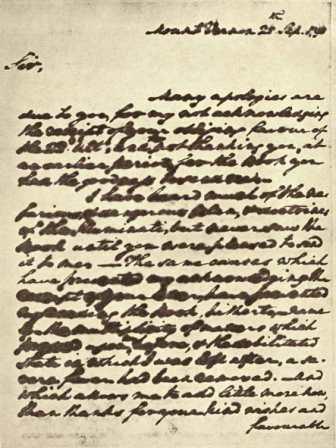 Mount Vernon 25th Sep. 1798
Sir,
Many apologies are
due to you, for my not acknowledging
the receipt of your obliging favour of
the 22d. Ult, and for not thanking you, at
an earlier period, for the Book you
had the goodness to send me.
I have heard much of the ne-
farious, & dangerous plan, & doctrines
of the Illuminati, but never saw the
Book until you were pleased to send
it to me. — The same causes which
have prevented my acknowledging the
receipt of your letter, have prevented
my reading the Book, hitherto; namely —
the multiplicity of matters which
pressed upon me before, & the debilitated
state in which I was left after, a se-
vere fever had been removed. And
which allows me to add little more now,
than thanks for your kind wishes and
favourable